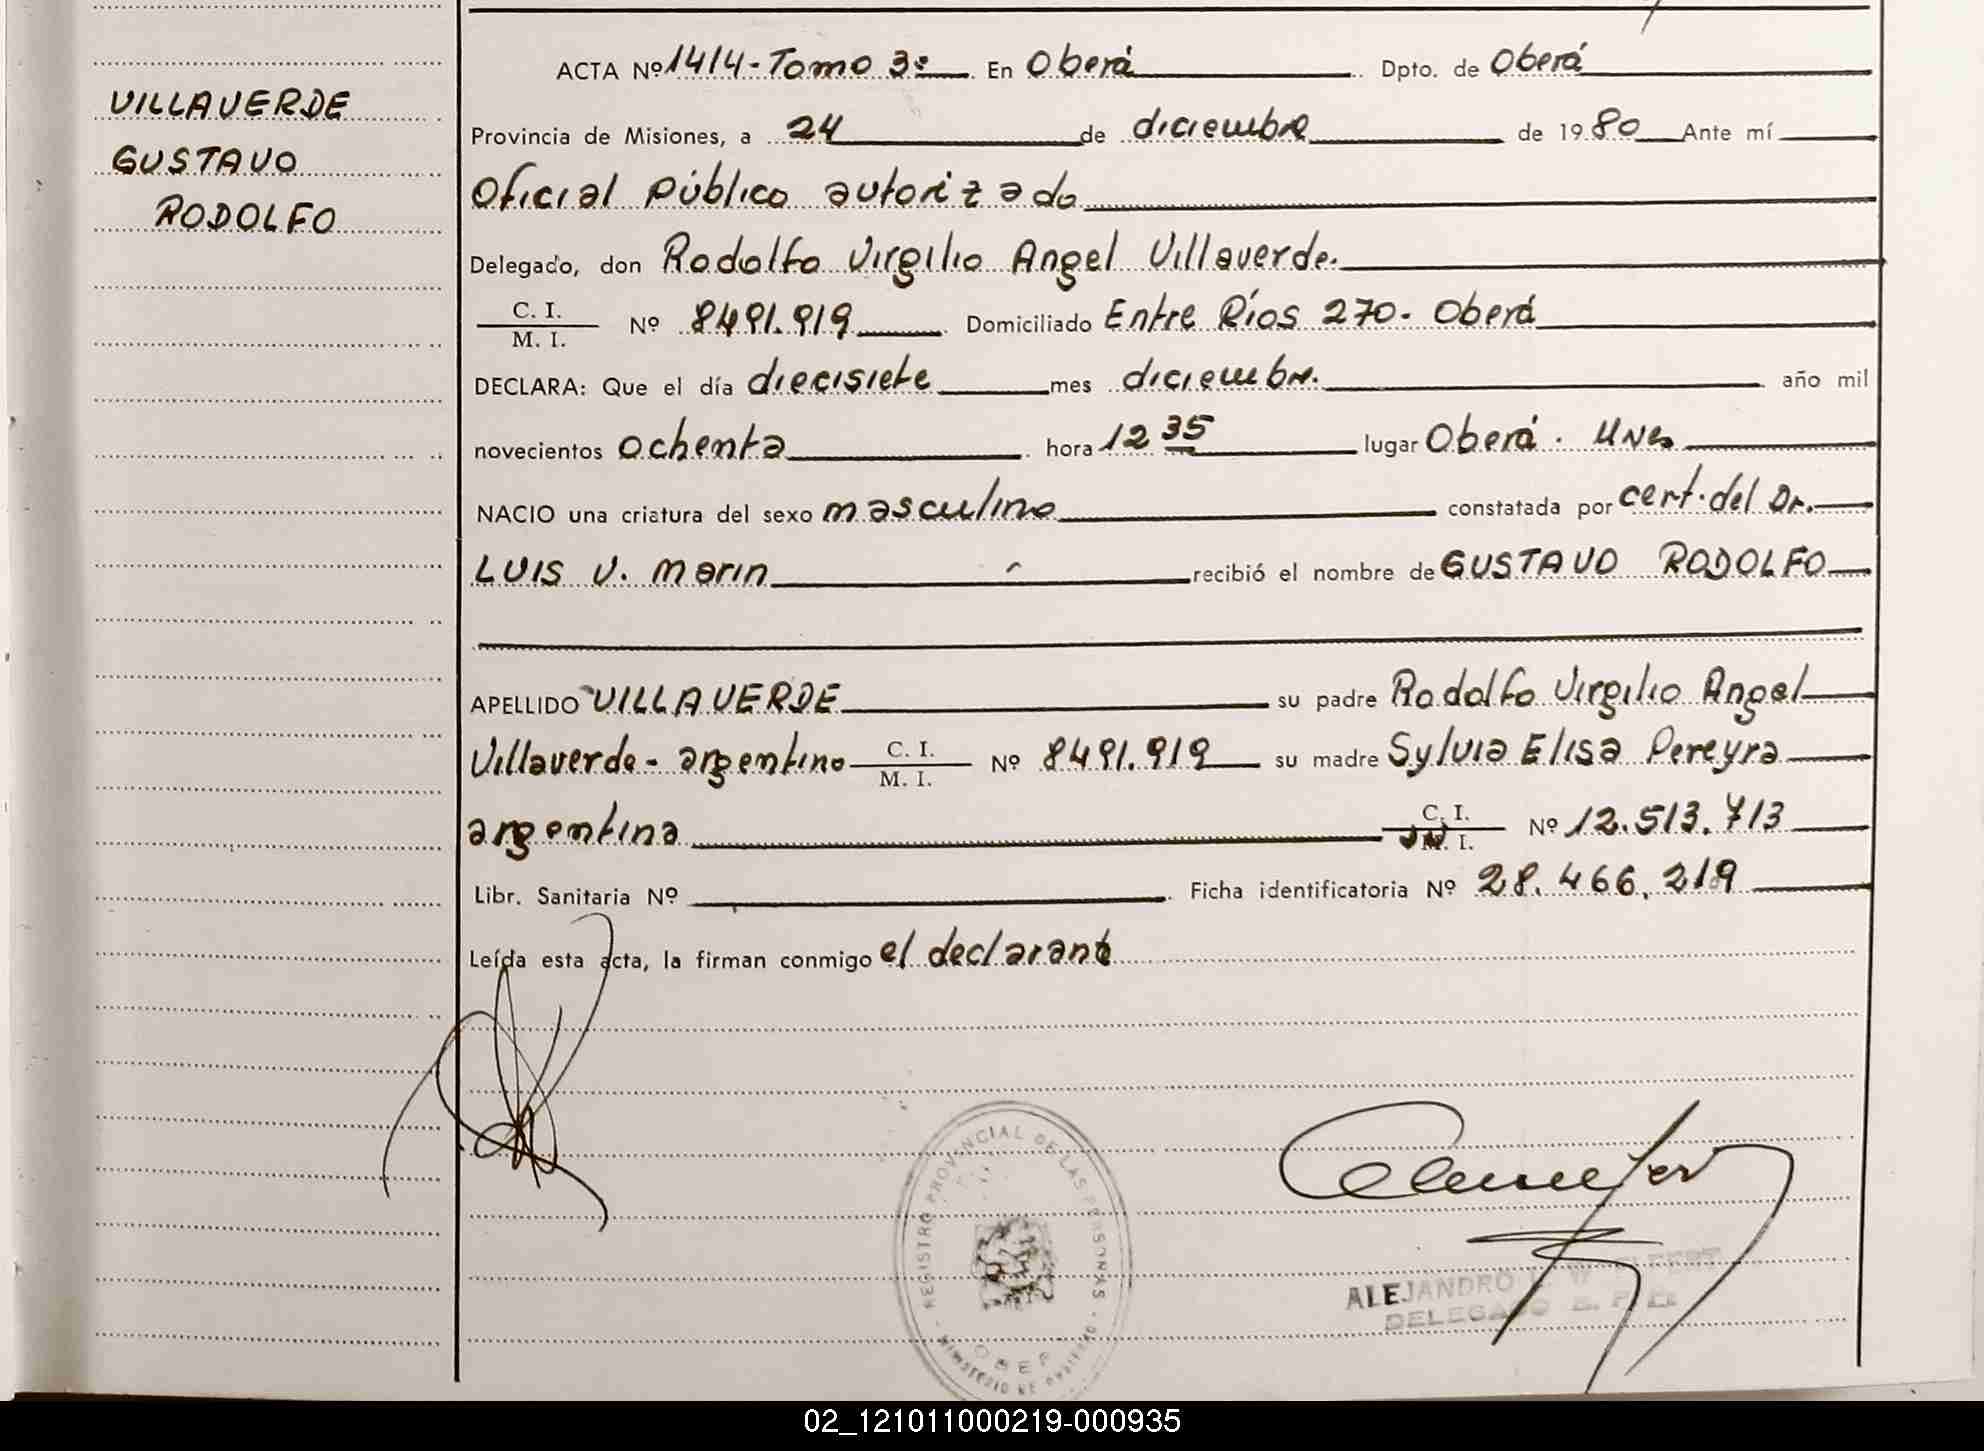 VILLAVERDE
GUSTAVO
RODOLFO
ACTA Nº 1414 - Tomo 3º En Oberá Dpto. de Oberá
Provincia de Misiones, a 24 de diciembre de 1980 Ante mí
Oficial Público autorizado
Delegado, don Rodolfo Virgilio Angel Villaverde.
C. I.
M. I. Nº 8491.919 Domiciliado Entre Ríos 270 - Oberá
DECLARA: Que el día diecisiete mes diciembre. año mil
novecientos ochenta hora 12 35 lugar Oberá.
NACIO una criatura del sexo masculino constatada por cert. del Dr.
LUIS V. Marin recibió el nombre de GUSTAVO RODOLFO
APELLIDO VILLAVERDE su padre Rodolfo Virgilio Angel
Villaverde - argentino C. I. M. I. Nº 8491.919 su madre Sylvia Elisa Pereyra
argentina C. I. M. I. Nº 12.513.713
Libr. Sanitaria Nº Ficha identificatoria Nº 28.466.219
Leída esta acta, la firman conmigo el declarante
REGISTRO PROVINCIAL DE LAS PERSONAS - MINISTERIO DE
ALEJANDRO
DELEGADO
02_121011000219-000935